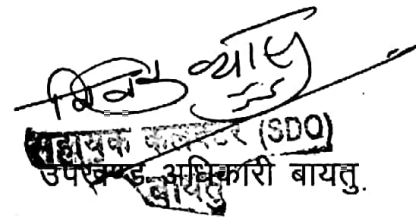 व्यास
सहायक कलक्टर (SDO)
उपखण्ड अधिकारी बायतु
बायतु